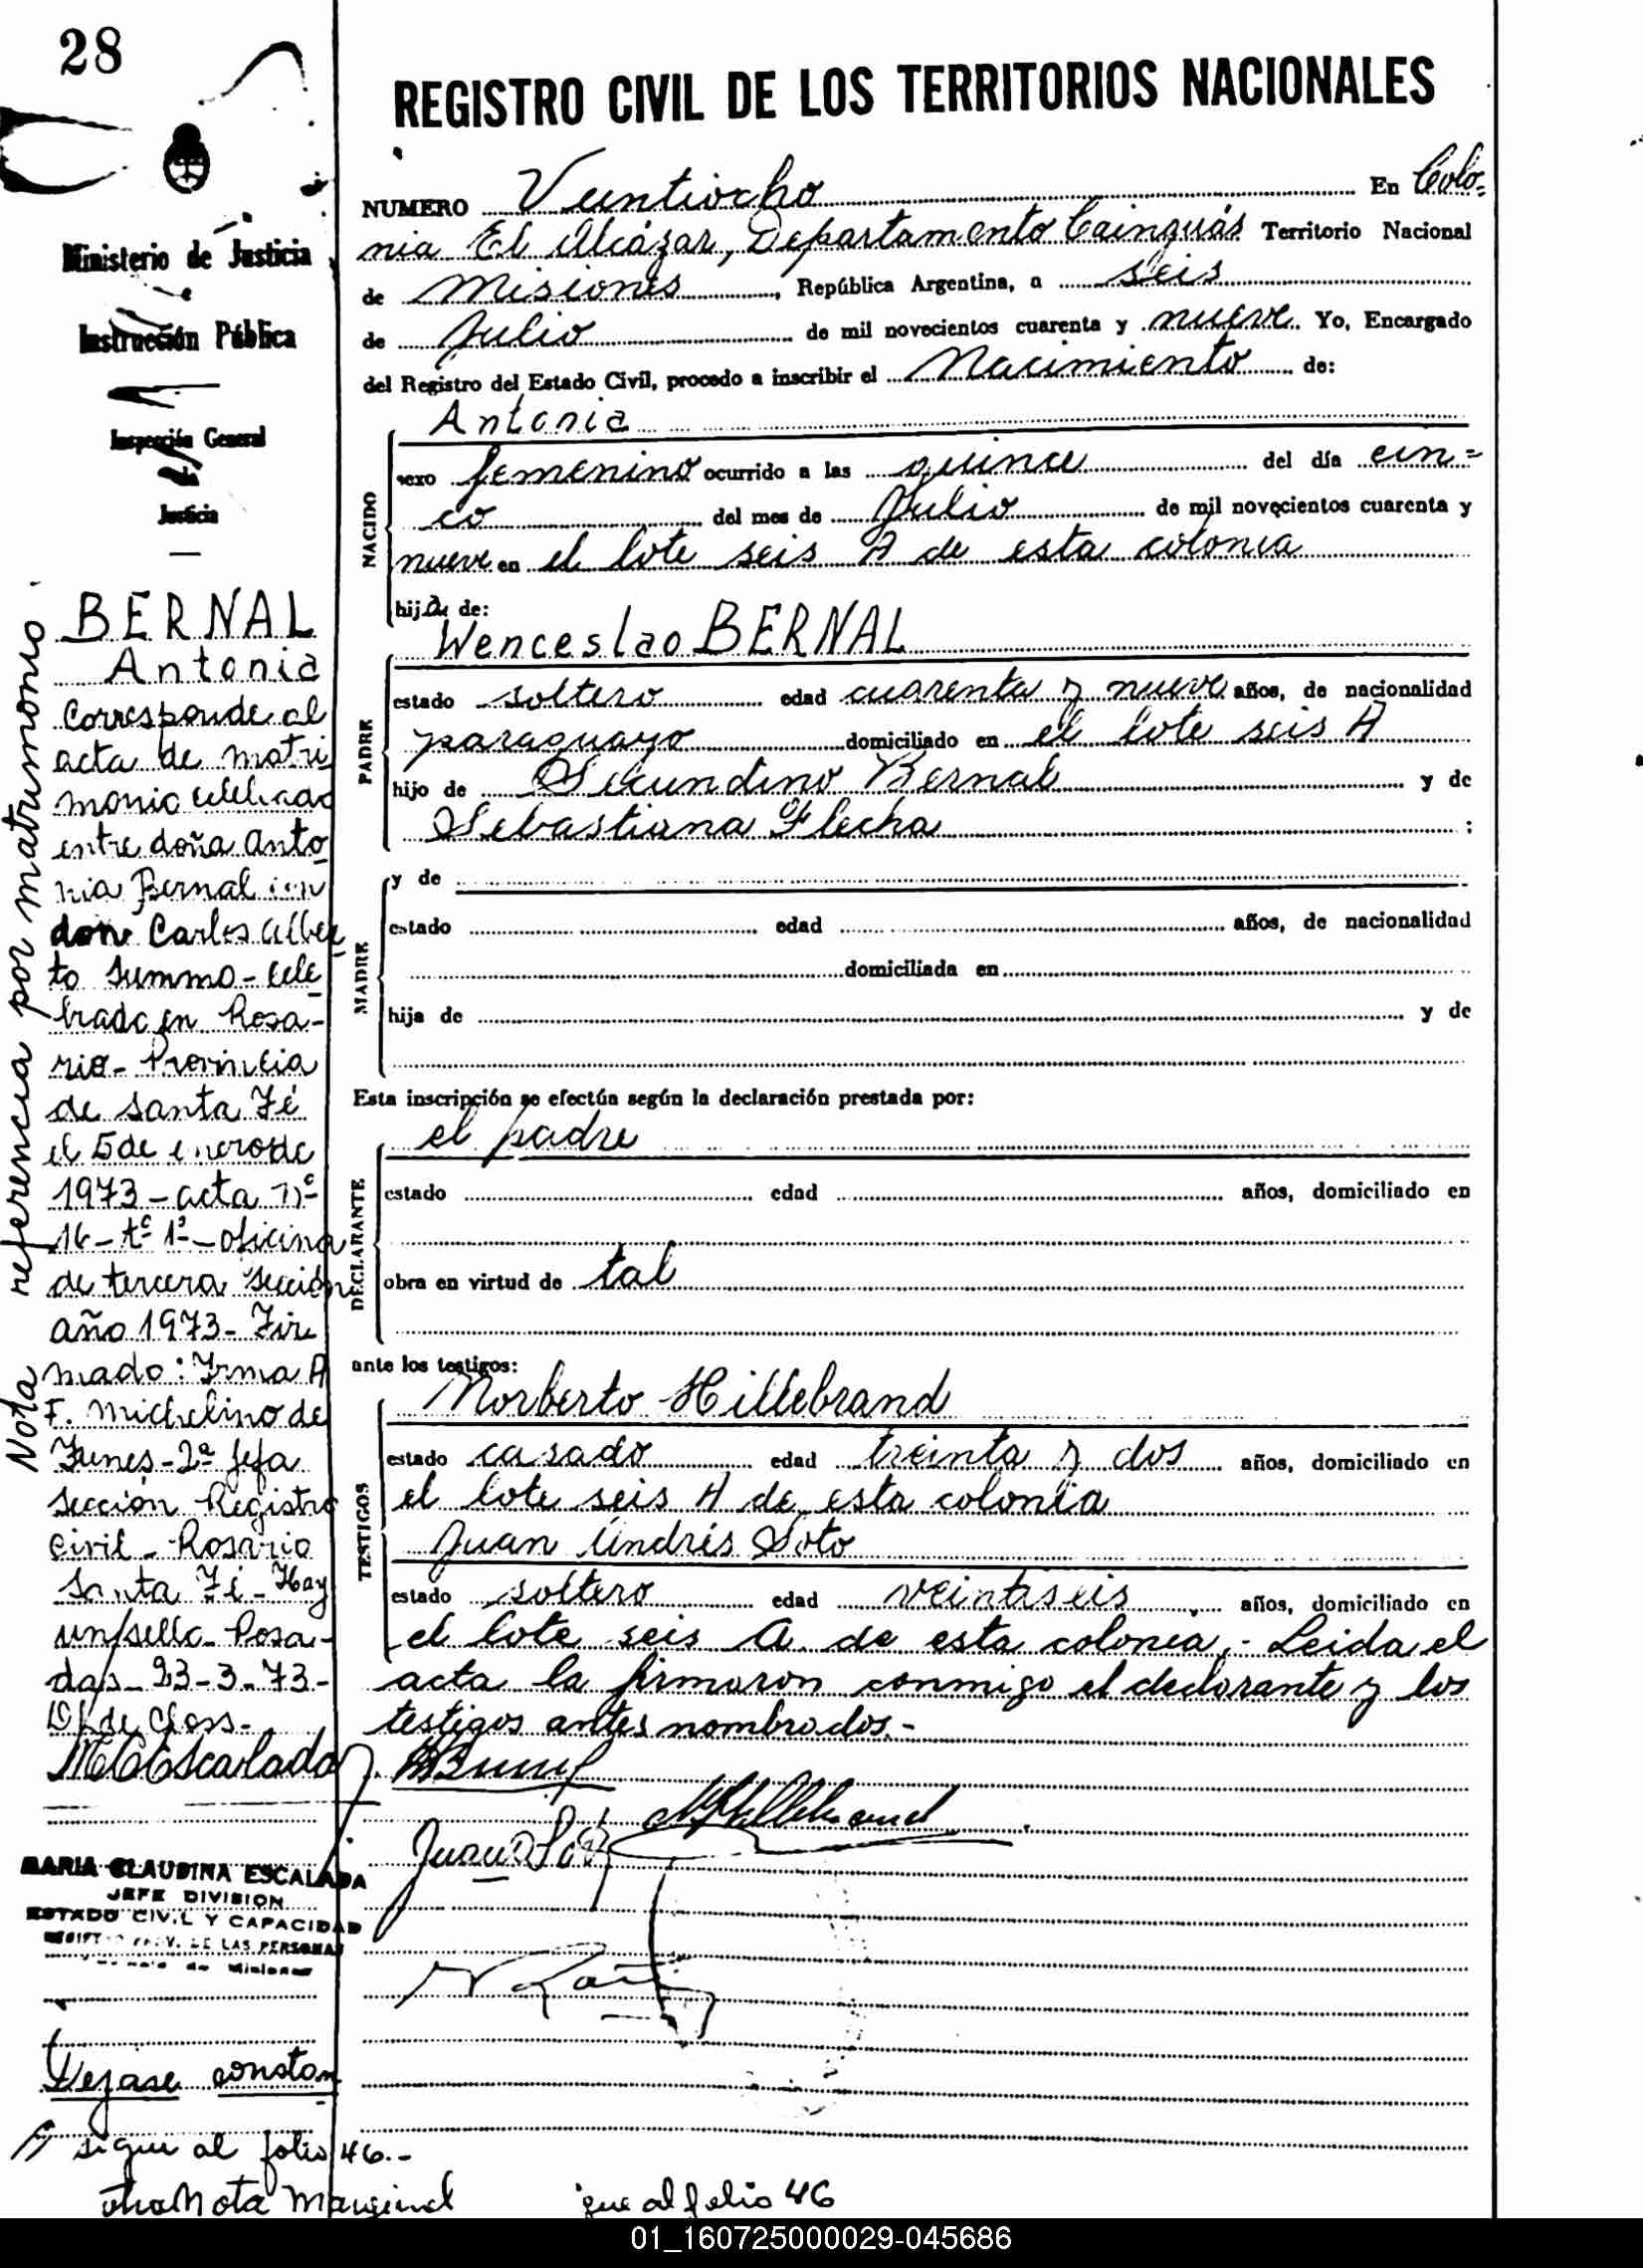 28
REGISTRO CIVIL DE LOS TERRITORIOS NACIONALES
Ministerio de Justicia
e
Instrucción Pública
Inspección General
de
Justicia
NUMERO Veintiocho En Colo-
nia El Alcázar, Departamento Cainguás Territorio Nacional
de Misiones, República Argentina, a seis
de Julio de mil novecientos cuarenta y nueve. Yo, Encargado
del Registro del Estado Civil, procedo a inscribir el Nacimiento de:
Antonia
NACIDO
sexo femenino ocurrido a las quince del día cin=
co del mes de Julio de mil novecientos cuarenta y
nueve en el lote seis A de esta colonia
hija de:
Wenceslao BERNAL
PADRE
estado soltero edad cuarenta y nueve años, de nacionalidad
paraguayo domiciliado en el lote seis A
hijo de Secundino Bernal y de
Sebastiana Flecha ;
MADRE
y de
estado edad años, de nacionalidad
domiciliada en
hija de y de
Esta inscripción se efectúa según la declaración prestada por:
el padre
DECLARANTE
estado edad años, domiciliado en
obra en virtud de tal
ante los testigos:
TESTIGOS
Norberto Hillebrand
estado casado edad treinta y dos años, domiciliado en
el lote seis A de esta colonia
Juan Andrés Soto
estado soltero edad veintiseis, años, domiciliado en
el lote seis A de esta colonia.- Leida el
acta la firmaron conmigo el declarante y los
testigos antes nombrados.-
Nota referencia por matrimonio
BERNAL
Antonia
Corresponde al
acta de matri
monio celebrado
entre doña Anto
nia Bernal con
don Carlos Alber
to Summo - Cele
brado en Rosa-
rio - Provincia
de Santa Fé
el 5 de enero de
1973 - acta nº
16 - tº 1º - oficina
de tercera sección
año 1973 - Fir
mado: Irma A
F. Michelino de
Funes - 2ª Jefa
Sección Registro
Civil - Rosario
Santa Fé - Hay
un sello - Posa-
das - 23-3-73-
MCEscalada
MARIA CLAUDINA ESCALADA
JEFE DIVISION
ESTADO CIVIL Y CAPACIDAD
LAS PERSONAS
de Misiones
Dejase constan
sigue al folio 46.-
otra Nota Marginal
que al folio 46
01_160725000029-045686